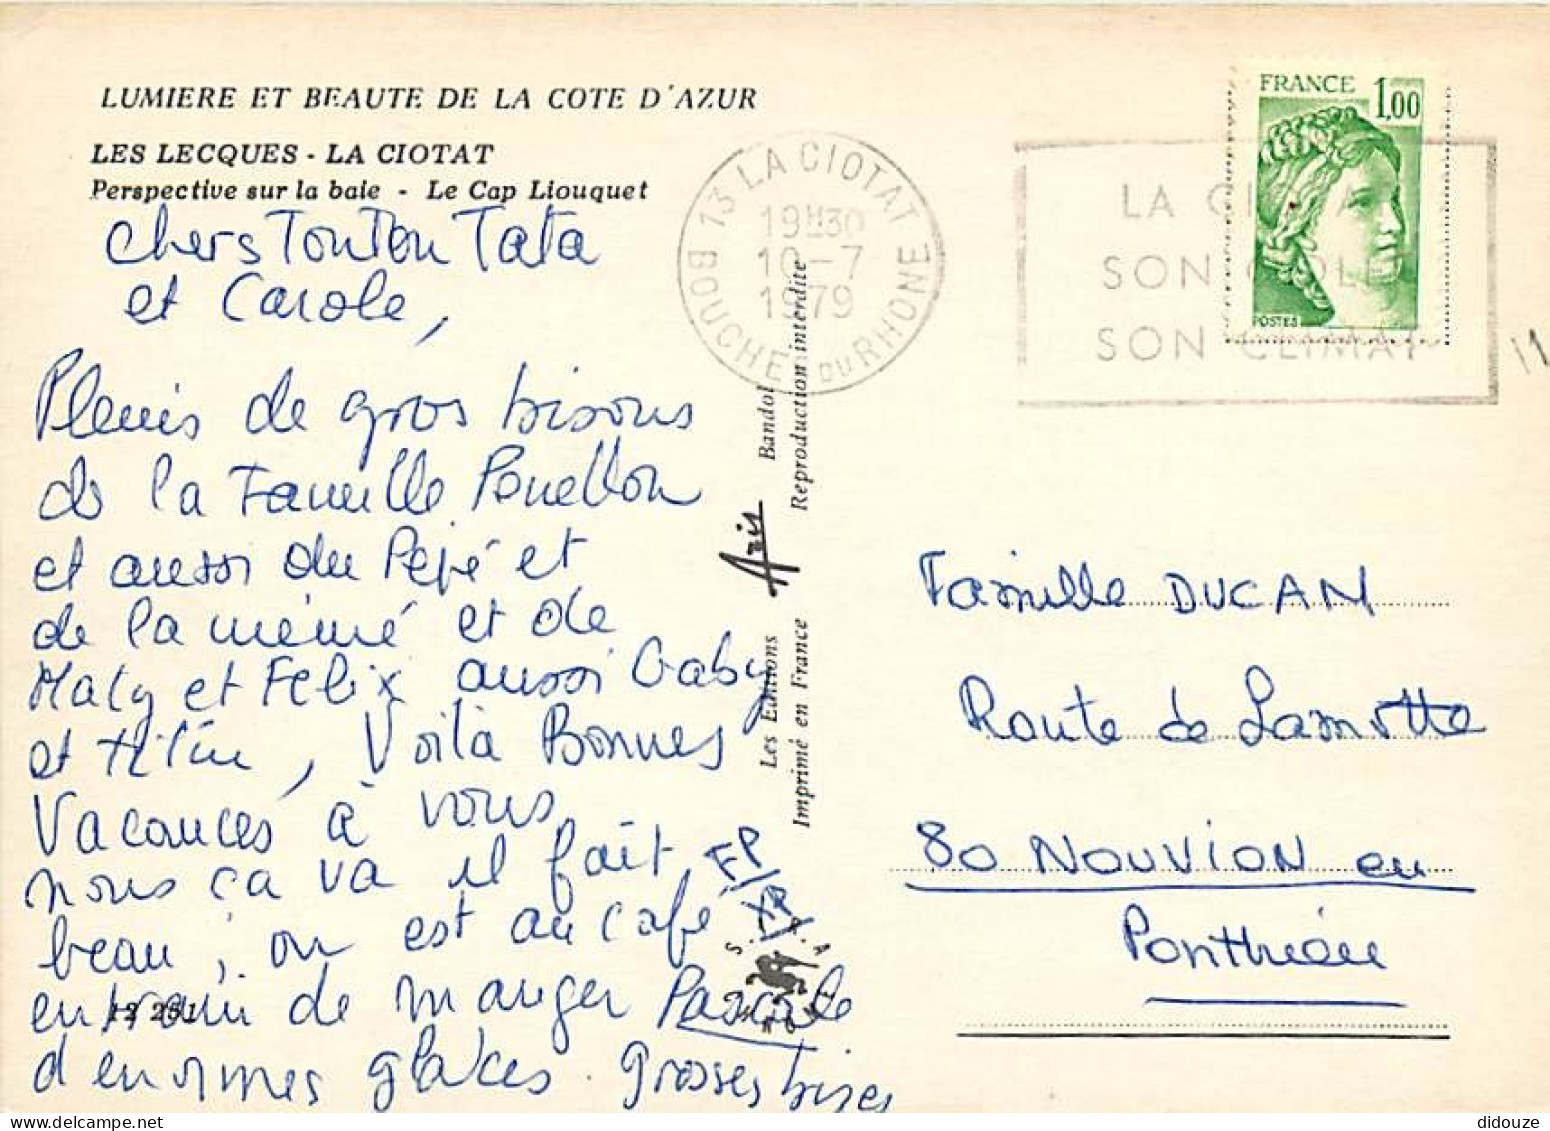 LUMIERE ET BEAUTE DE LA COTE D'AZUR
LES LECQUES - LA CIOTAT
Perspective sur la baie - Le Cap Liouquet
Chers Tonton Tata
et Carole,
Pleins de gros bisous
de la Famille
et aussi du Pépé et
de la mémé et de
Maty et Félix aussi Gaby
et , Voilà Bonnes
Vacances à vous
nous ça va il fait
beau, on est au café
en train de manger
d'enormes glaces. Grosses bises
Pascale
12 251
13 LA CIOTAT
19H30
10-7
1979
BOUCHES DU RHONE
LA CIOTAT
SON GOLFE
SON CLIMAT
FRANCE 1,00
POSTES
Les Editions Aris Bandol
Imprimé en France Reproduction interdite
Famille DUCAM
Route de Lamotte
80 NOUVION en
Ponthieu
didouze